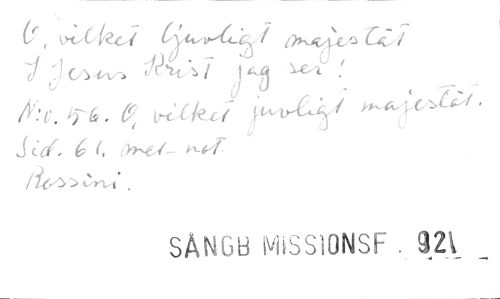 O, vilket ljuvligt majestät
I Jesus Krist jag ser!
N:o. 56. O, vilket juvligt majestät.
Sid. 61. mel. not.
Rossini.
SÅNGB MISSIONSF. 921